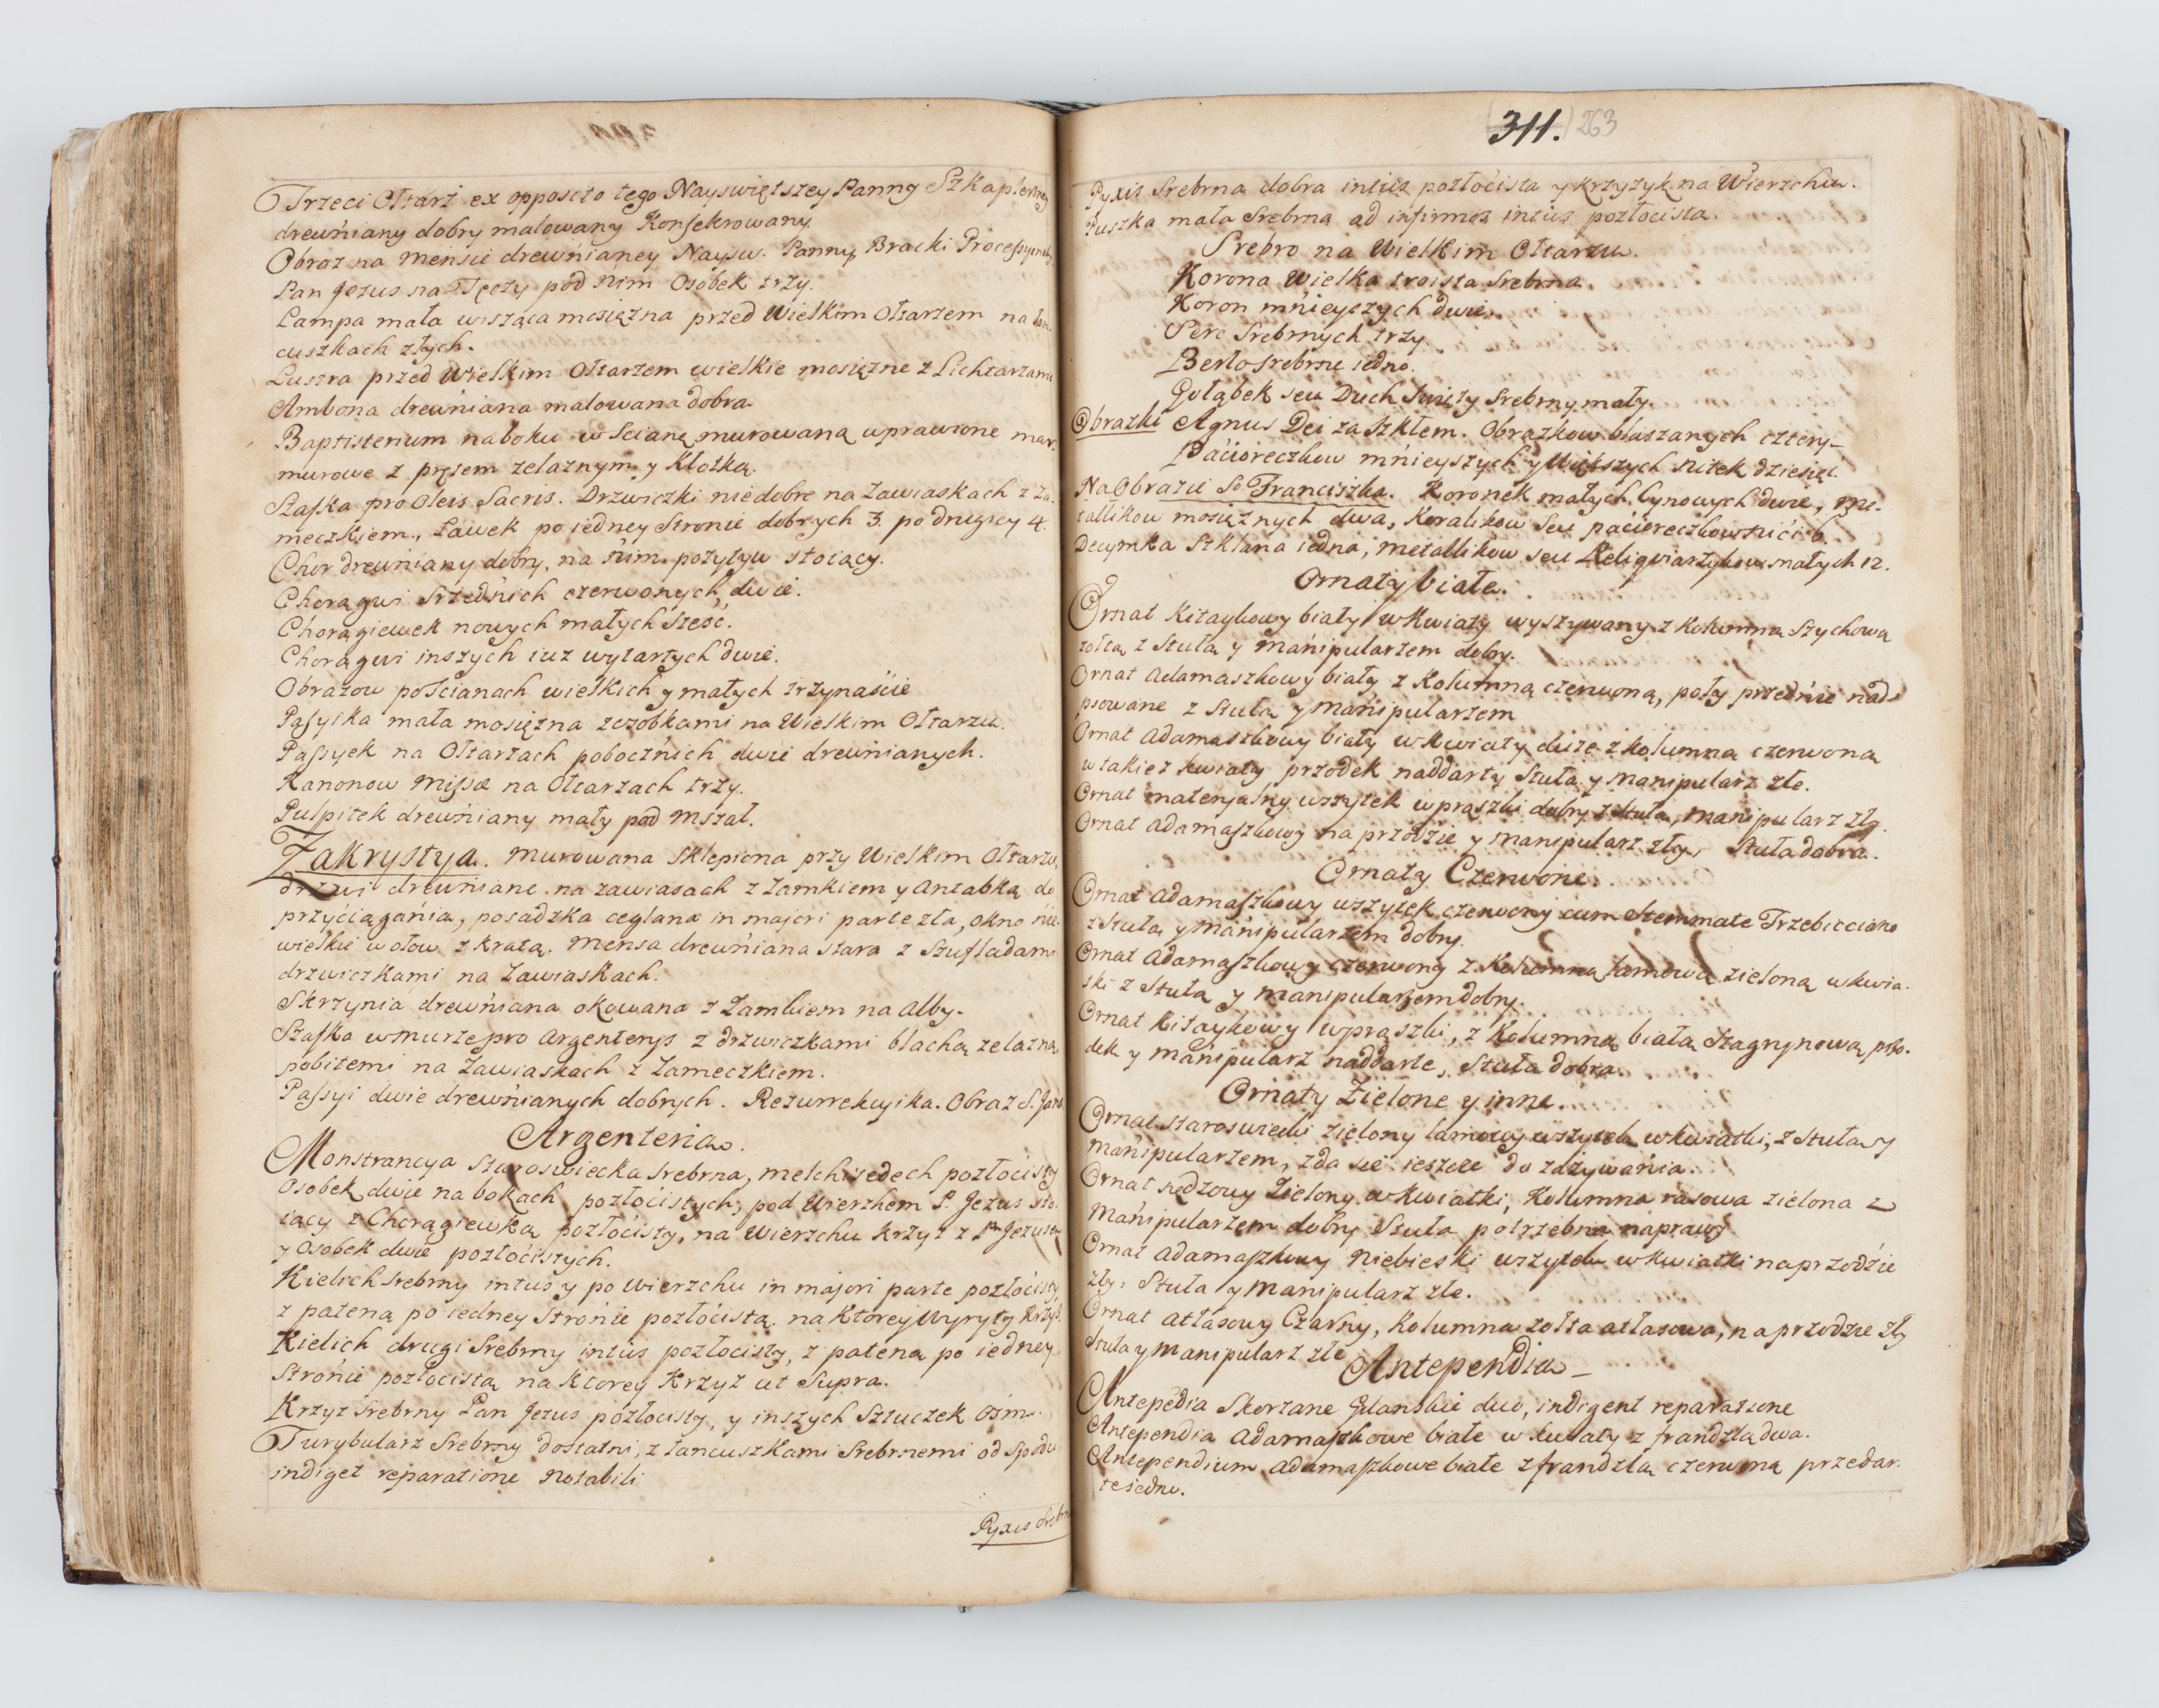 Trzeci Ołtarz ex opposito tego Nayświętszey Panny Szkaplerzney
drewniany dobry malowany Konsekrowany.
Obraz na mensie drewnianey Nayśw. Panny Bracki Processyonalny.
Pan Jezus na Tęczy pod nim Osobek trzy.
Lampa mała wisząca mosiężna przed Wielkim Ołtarzem na łan-
cuszkach złych.
Lustra przed Wielkim Ołtarzem wielkie mosiężne z Lichtarzami
Ambona drewniana malowana dobra.
Baptisterium na boku w Scianę murowaną wprawione mar-
murowe z prętem zelaznym y Klotką.
Szafka pro Oleis Sacris. Drzwiczki niedobre na Zawiaskach z Za-
meczkiem, Ławek po iedney Stronie dobrych 3. po drugiey 4.
Chor drewniany dobry, na nim pozytyw stoiący.
Chorągwi Srzednich czerwonych dwie.
Chorągiewek nowych małych sześć.
Chorągwi inszych iuz wytartych dwie.
Obrazow po Scianach wielkich y małych trzynaście
Passyika mała mosiężna z ozobkami na Wielkim Ołtarzu.
Passyek na Ołtarzach pobocznich dwie drewnianych.
Kanonow Missæ na Ołtarzach trzy.
Pulpitek drewniany mały pod Mszał.
Zakrystya. murowana sklepiona przy Wielkim Ołtarzu,
drzwi drewniane na zawiasach z Zamkiem y Antabką do
przyciągania, posadzka ceglana in majori parte zła, okno nie-
wielkie w ołow z kratą. Mensa drewniana stara z Szufladami
drzwiczkami na Zawiaskach.
Skrzynia drewniana okowana z Zamkiem na Alby.
Szafka w murze pro Argenterys z drzwiczkami blachą zelazną
pobitemi na Zawiaskach z Zameczkiem.
Passyi dwie drewnianych dobrych. Rezurrekcyika. Obraz S. Jana
Argenteria.
Monstrancya staroswiecka srebrna, melchisedech pozłocisty
osobek dwie na bokach pozłocistych, pod wierzhem P. Jezus sto-
iący z Chorągiewką pozłocisty, na Wierzchu krzyż z P. Jezusem
y osobek dwie pozłocistych.
Kielich srebrny intus y po wierzchu in majori parte pozłocisty,
z pateną po iedney stronie pozłocistą, na ktorey wyryty Krzyż.
Kielich drugi srebrny intus pozłocisty, z pateną po iedney
Stronie pozłocistą na ktorey Krzyż ut Supra.
Krzyz srebrny Pan Jezus pozłocisty, y inszych Sztuczek ośm.
Turybularz Srebrny dostatni, z łancuszkami Srebrnemi od Spodu
indiget reparatione notabili
Pyxis Srebrna
311. 263
Pyxis Srebrna dobra intus pozłocista y krzyżyk na Wierzchu.
Puszka mała Srebrna ad infirmos intus pozłocista.
Srebro na Wielkim Ołtarzu.
Korona Wielka troista Srebrna.
Koron mnieyszych dwie.
Serc Srebrnych trzy.
Berło srebrne iedno.
Gołąbek seu Duch Swięty Srebrny mały.
Obrazki Agnus Dei za Szkłem. Obrazkow blaszanych cztery
Pacioreczkow mnieyszych y Większych nitek dziesięć.
Na Obrazie So Franciszka. Koronek małych Cynowych dwie, me-
tallikow mosiężnych dwa, Koralikow seu pacioreczkow nici 6.
Decymka Szklana iedna, metallikow seu Reliqwiarzykow małych 12.
Ornaty białe.
Ornat Kitaykowy biały w kwiaty wyszywany z kolumną Sztychową
zołtą z stułą y manipularzem dobry.
Ornat Adamaszkowy biały z Kolumną czerwoną, poły przednie nad-
psowane z stułą y manipularzem
Ornat Adamaszkowy biały w kwiaty duze z kolumną czerwoną
w takiez kwiaty przodek naddarty Stuła y manipularz złe.
Ornat materyalny wszytek w prąszki dobry z stułą, manipularz zły.
Ornat Adamaszkowy na przodzie y manipularz zły, Stuła dobra.
Ornaty Czerwone.
Ornat Adamaszkowy wszytek czerwony cum Stemmate Trzebicciano
z stułą y manipularzem dobry.
Ornat Adamaszkowy czerwony z Kolumną lamową zieloną w kwia-
tki z Stułą y manipularzem dobry.
Ornat Kitaykowy w prąszki, z Kolumną białą Sztagnynową przo-
dek y manipularz naddarte, Stuła dobra.
Ornaty Zielone y inne.
Ornat staroswiecki zielony lamowy wszytek w kwiatki, z stułą y
manipularzem, zda się ieszcze do zażywania.
Ornat rędzowy Zielony w kwiatki, Kolumna rasowa zielona z
Manipularzem dobry Stuła potrzebna naprawy
Ornat Adamaszkowy Niebieski wszytek w kwiatki na przodzie
zły, Stuła y manipularz złe.
Ornat atłasowy Czarny, Kolumna zołta atłasowa, na przodzie zły
Stuła y manipularz złe
Antependia
Antepedia Skorzane Gdanskie duo, indigent reparatione
Antependia Adamaszkowe białe w kwiaty z frandzlą dwa.
Antependium Adamaszkowe białe z frandzlą czerwoną przedar-
te iedno.